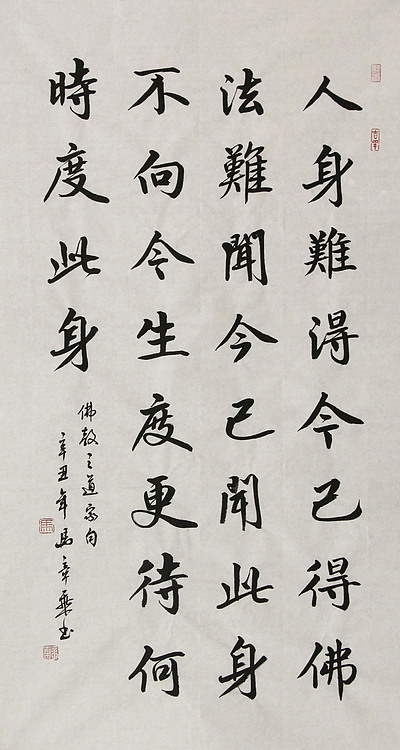 人身難得今已得佛
法難聞今已聞此身
不向今生度更待何
時度此身
佛教之道家句
辛丑年馬章乘书